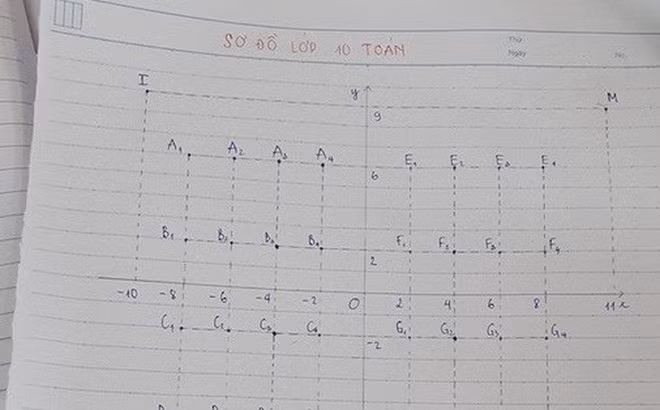 SƠ ĐỒ LỚP 10 TOÁN
Thứ
Ngày
No.
I y M
9
A1 A2 A3 A4 E1 E2 E3 E4
6
B1 B2 B3 B4 F1 F2 F3 F4
2
-10 -8 -6 -4 -2 O 2 4 6 8 11 x
C1 C2 C3 C4 G1 G2 G3 G4
-2